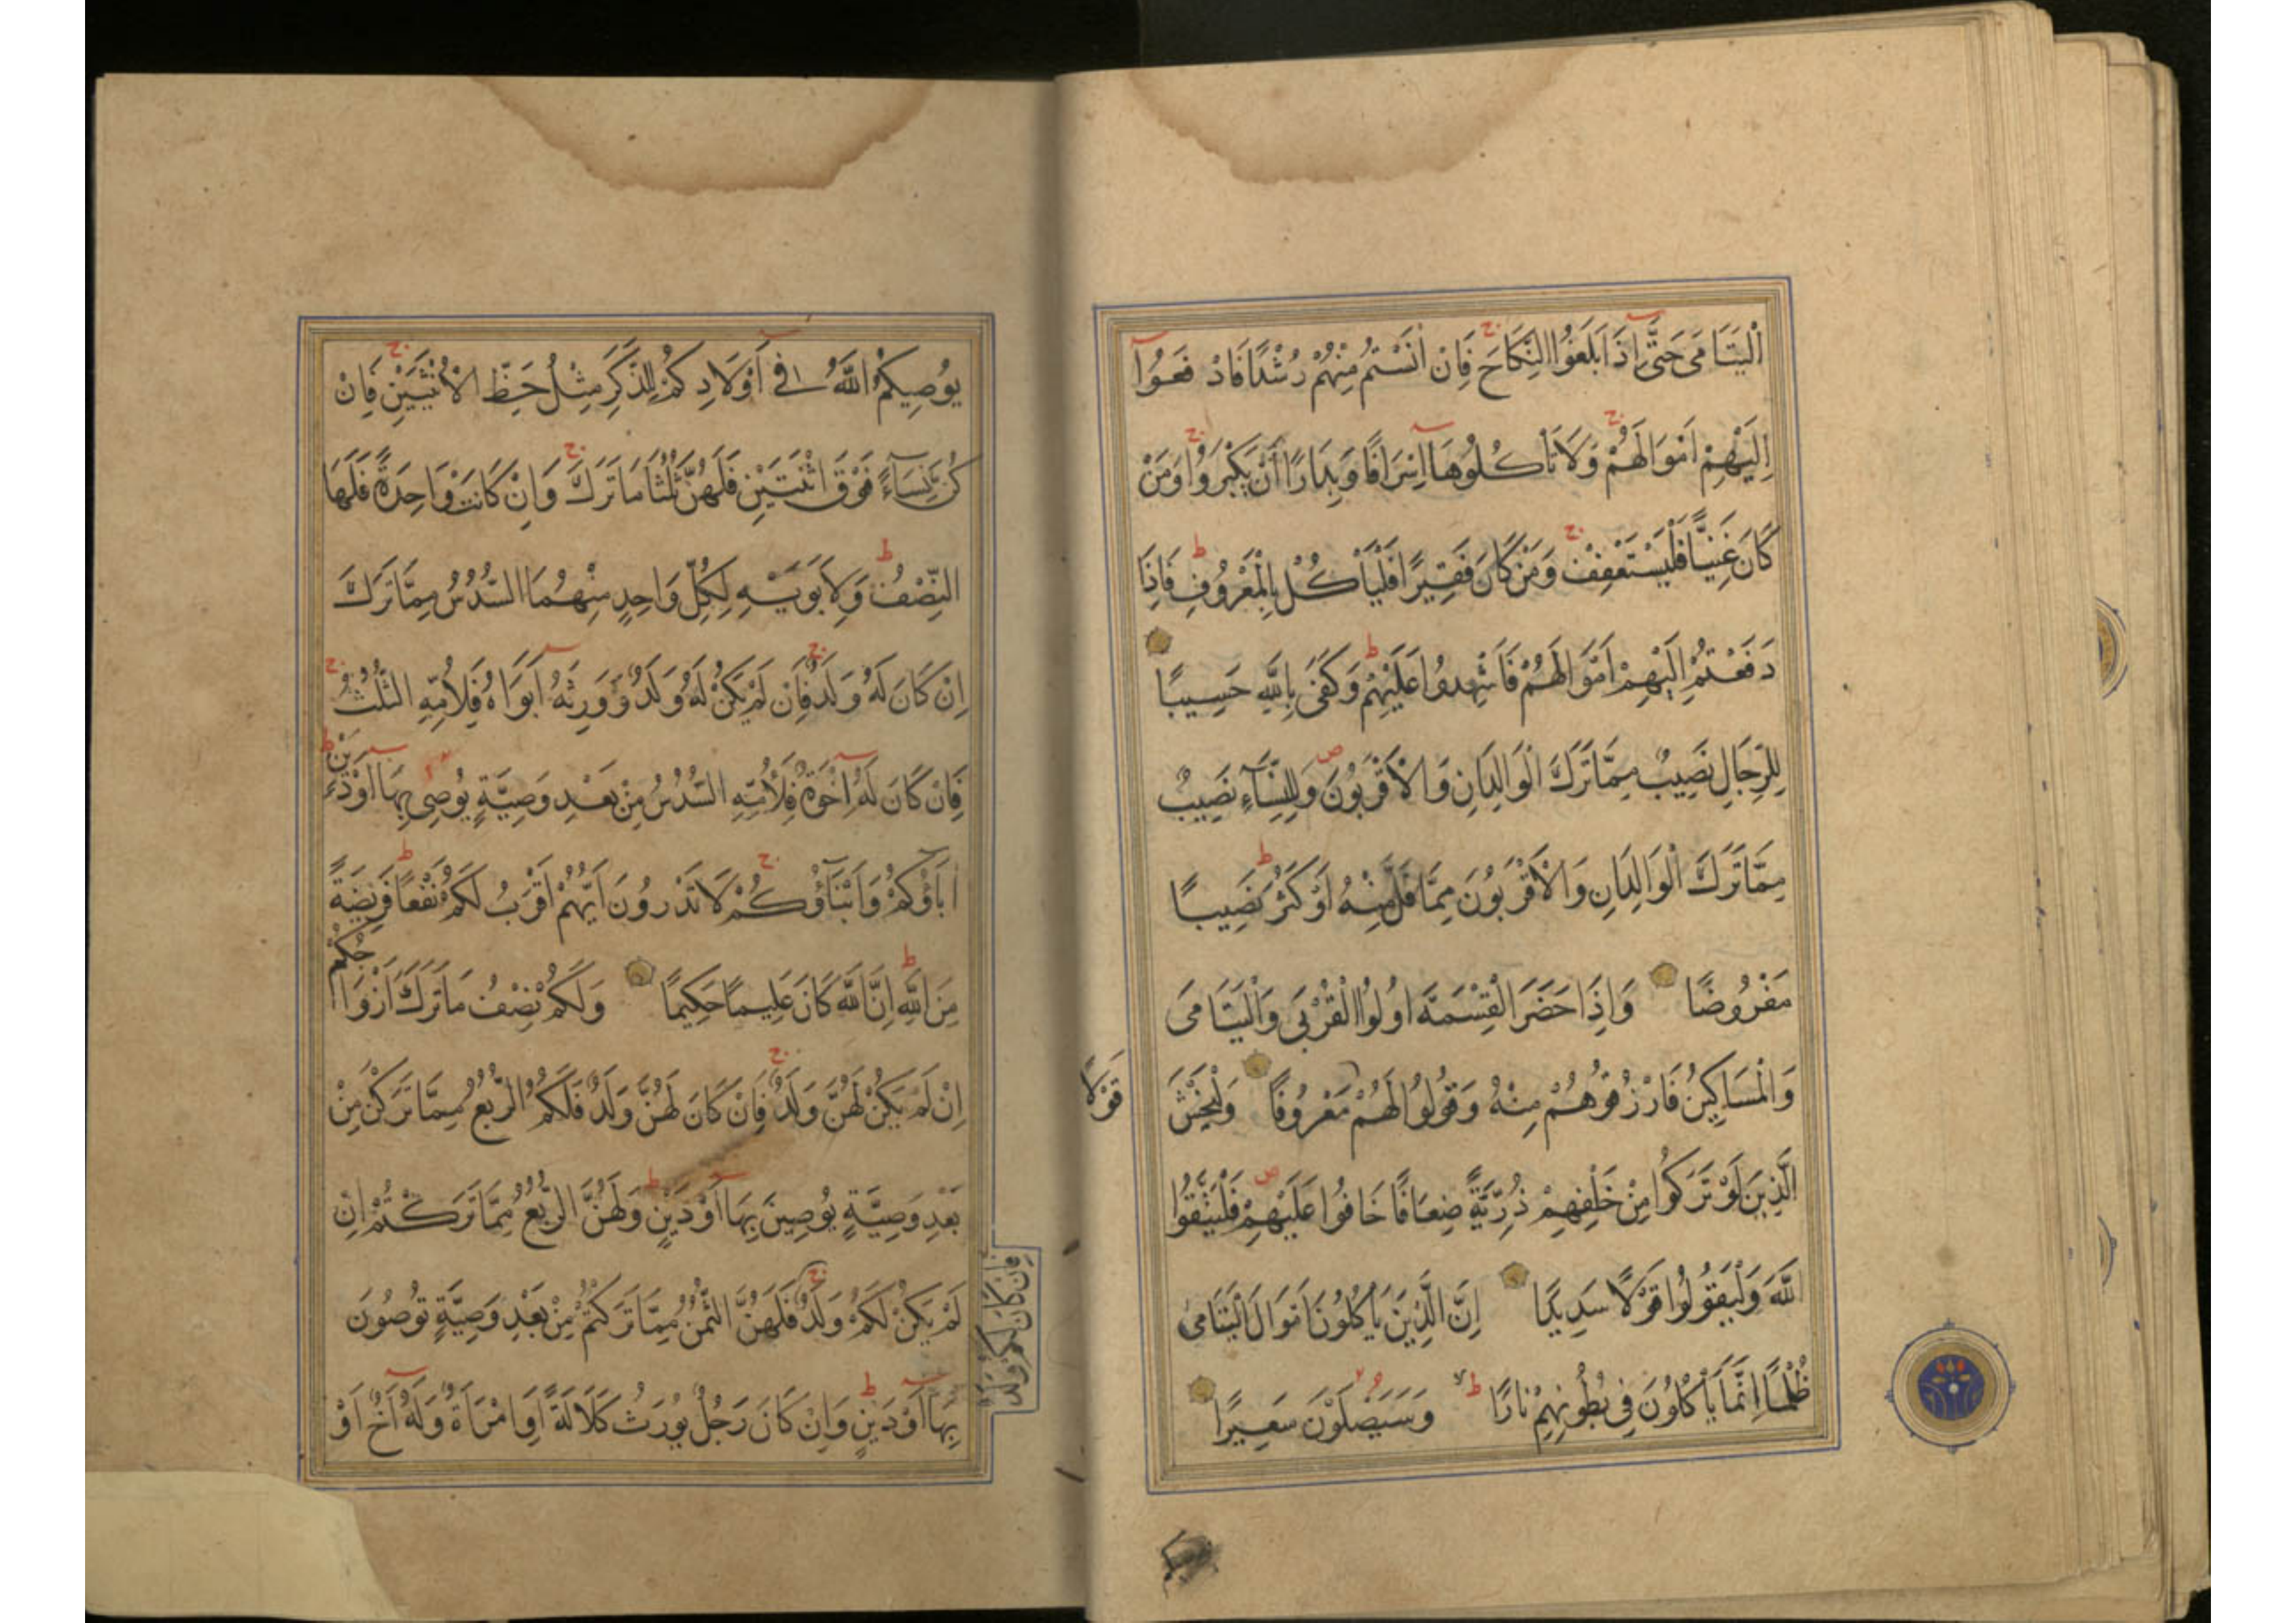 اَلْيَتَامَى حَتَّى إِذَا بَلَغُوا النِّكَاحَ فَإِنْ اٰنَسْتُمْ مِنْهُمْ رُشْدًا فَادْفَعُوا
إِلَيْهِمْ أَمْوَالَهُمْ وَلَا تَأْكُلُوهَا إِسْرَافًا وَبِدَارًا أَنْ يَكْبَرُوا وَمَنْ
كَانَ غَنِيًّا فَلْيَسْتَعْفِفْ وَمَنْ كَانَ فَقِيرًا فَلْيَأْكُلْ بِالْمَعْرُوفِ فَإِذَا
دَفَعْتُمْ إِلَيْهِمْ أَمْوَالَهُمْ فَأَشْهِدُوا عَلَيْهِمْ وَكَفَى بِاللَّهِ حَسِيبًا
لِلرِّجَالِ نَصِيبٌ مِمَّا تَرَكَ الْوَالِدَانِ وَالْأَقْرَبُونَ وَلِلنِّسَآءِ نَصِيبٌ
مِمَّا تَرَكَ الْوَالِدَانِ وَالْأَقْرَبُونَ مِمَّا قَلَّ مِنْهُ أَوْ كَثُرَ نَصِيبًا
مَفْرُوضًا وَإِذَا حَضَرَ الْقِسْمَةَ اُولُوا الْقُرْبَى وَالْيَتَامَى
وَالْمَسَاكِينُ فَارْزُقُوهُمْ مِنْهُ وَقُولُوا لَهُمْ مَعْرُوفًا وَلْيَخْشَ
قَوْلًا
الَّذِينَ لَوْ تَرَكُوا مِنْ خَلْفِهِمْ ذُرِّيَّةً ضِعَافًا خَافُوا عَلَيْهِمْ فَلْيَتَّقُوا
اللَّهَ وَلْيَقُولُوا قَوْلًا سَدِيدًا إِنَّ الَّذِينَ يَأْكُلُونَ أَمْوَالَ الْيَتَامَى
ظُلْمًا إِنَّمَا يَأْكُلُونَ فِي بُطُونِهِمْ نَارًا وَسَيَصْلَوْنَ سَعِيرًا
يُوصِيكُمُ اللَّهُ فِي أَوْلَادِكُمْ لِلذَّكَرِ مِثْلُ حَظِّ الْأُنْثَيَيْنِ فَإِنْ
كُنَّ نِسَآءً فَوْقَ اثْنَتَيْنِ فَلَهُنَّ ثُلُثَا مَا تَرَكَ وَإِنْ كَانَتْ وَاحِدَةً فَلَهَا
النِّصْفُ وَلِأَبَوَيْهِ لِكُلِّ وَاحِدٍ مِنْهُمَا السُّدُسُ مِمَّا تَرَكَ
إِنْ كَانَ لَهُ وَلَدٌ فَإِنْ لَمْ يَكُنْ لَهُ وَلَدٌ وَوَرِثَهُ أَبَوَاهُ فَلِأُمِّهِ الثُّلُثُ
فَإِنْ كَانَ لَهُ إِخْوَةٌ فَلِأُمِّهِ السُّدُسُ مِنْ بَعْدِ وَصِيَّةٍ يُوصِي بِهَا أَوْ دَيْنٍ
اٰبَاؤُكُمْ وَأَبْنَآؤُكُمْ لَا تَدْرُونَ أَيُّهُمْ أَقْرَبُ لَكُمْ نَفْعًا فَرِيضَةً
مِنَ اللَّهِ إِنَّ اللَّهَ كَانَ عَلِيمًا حَكِيمًا وَلَكُمْ نِصْفُ مَا تَرَكَ أَزْوَاجُكُمْ
إِنْ لَمْ يَكُنْ لَهُنَّ وَلَدٌ فَإِنْ كَانَ لَهُنَّ وَلَدٌ فَلَكُمُ الرُّبُعُ مِمَّا تَرَكْنَ مِنْ
بَعْدِ وَصِيَّةٍ يُوصِينَ بِهَا أَوْ دَيْنٍ وَلَهُنَّ الرُّبُعُ مِمَّا تَرَكْتُمْ إِنْ
لَمْ يَكُنْ لَكُمْ وَلَدٌ فَلَهُنَّ الثُّمُنُ مِمَّا تَرَكْتُمْ مِنْ بَعْدِ وَصِيَّةٍ تُوصُونَ
فَإِنْ كَانَ لَكُمْ وَلَدٌ
بِهَا أَوْ دَيْنٍ وَإِنْ كَانَ رَجُلٌ يُورَثُ كَلَالَةً أَوِ امْرَأَةٌ وَلَهُ أَخٌ أَوْ